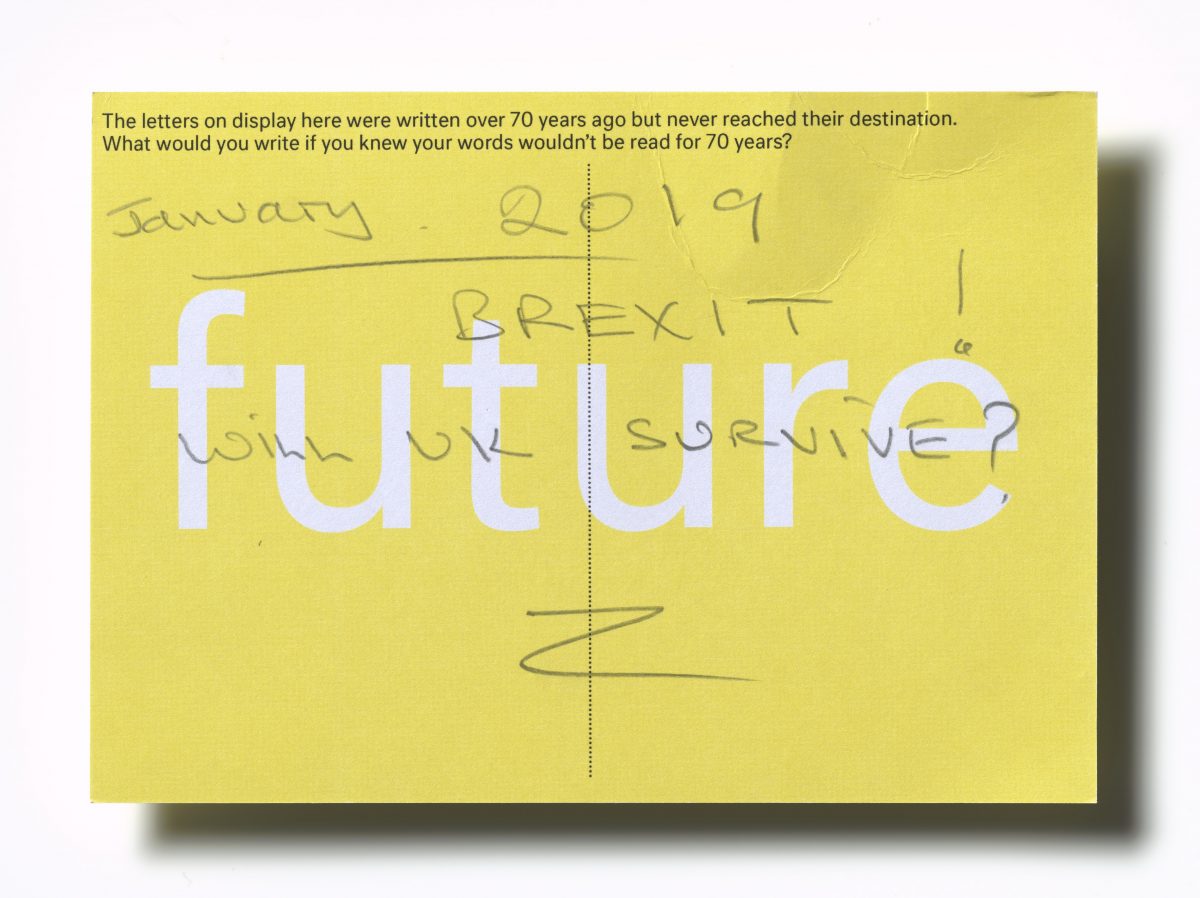 The letters on display here were written over 70 years ago but never reached their destination.
What would you write if you knew your words wouldn't be read for 70 years?
January. 2019
BREXIT !
future
WILL UK SURVIVE?